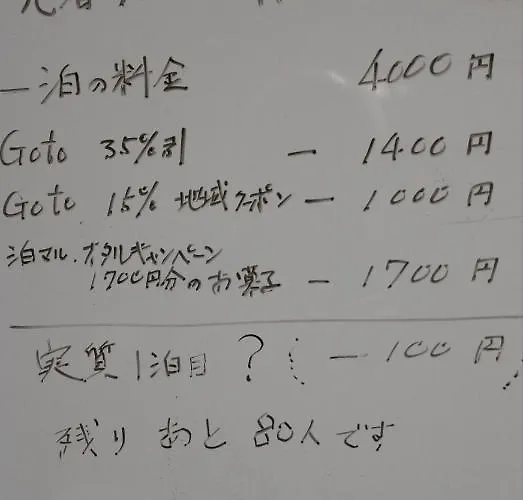 一泊の料金 4000円
Goto 35%割 ー 1400円
Goto 15% 地域クーポン ー 1000円
泊マル.オタルキャンペーン
1700円分のお菓子 ー 1700円
実質1泊目 ? (ー100円)
残り あと 80人です